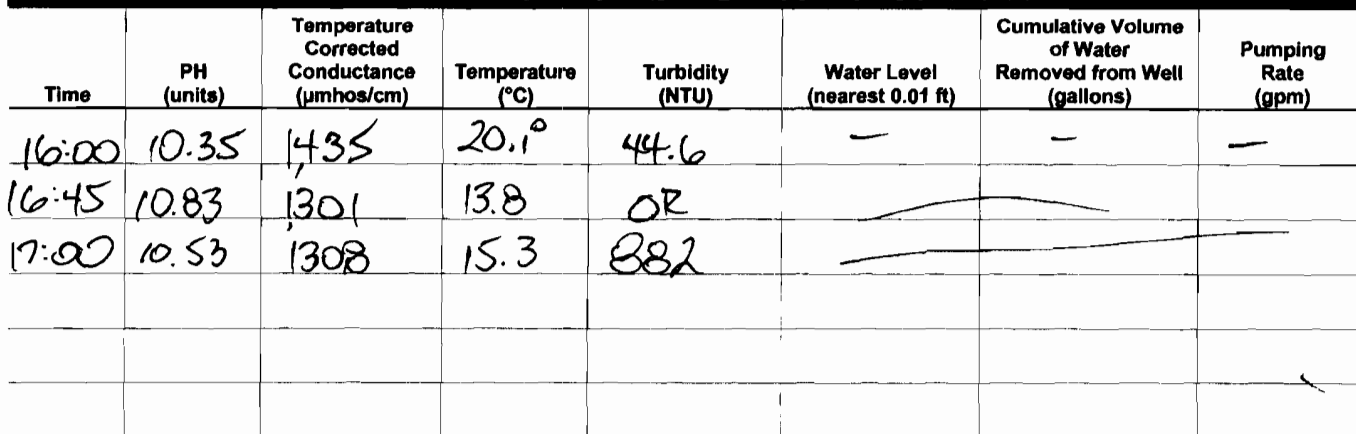 Time PH (units) Temperature Corrected Conductance (µmhos/cm) Temperature (°C) Turbidity (NTU) Water Level (nearest 0.01 ft) Cumulative Volume of Water Removed from Well (gallons) Pumping Rate (gpm)
16:00 10.35 1,435 20.1° 44.6 — — —
16:45 10.83 1,301 13.8 OR
17:00 10.53 1308 15.3 882